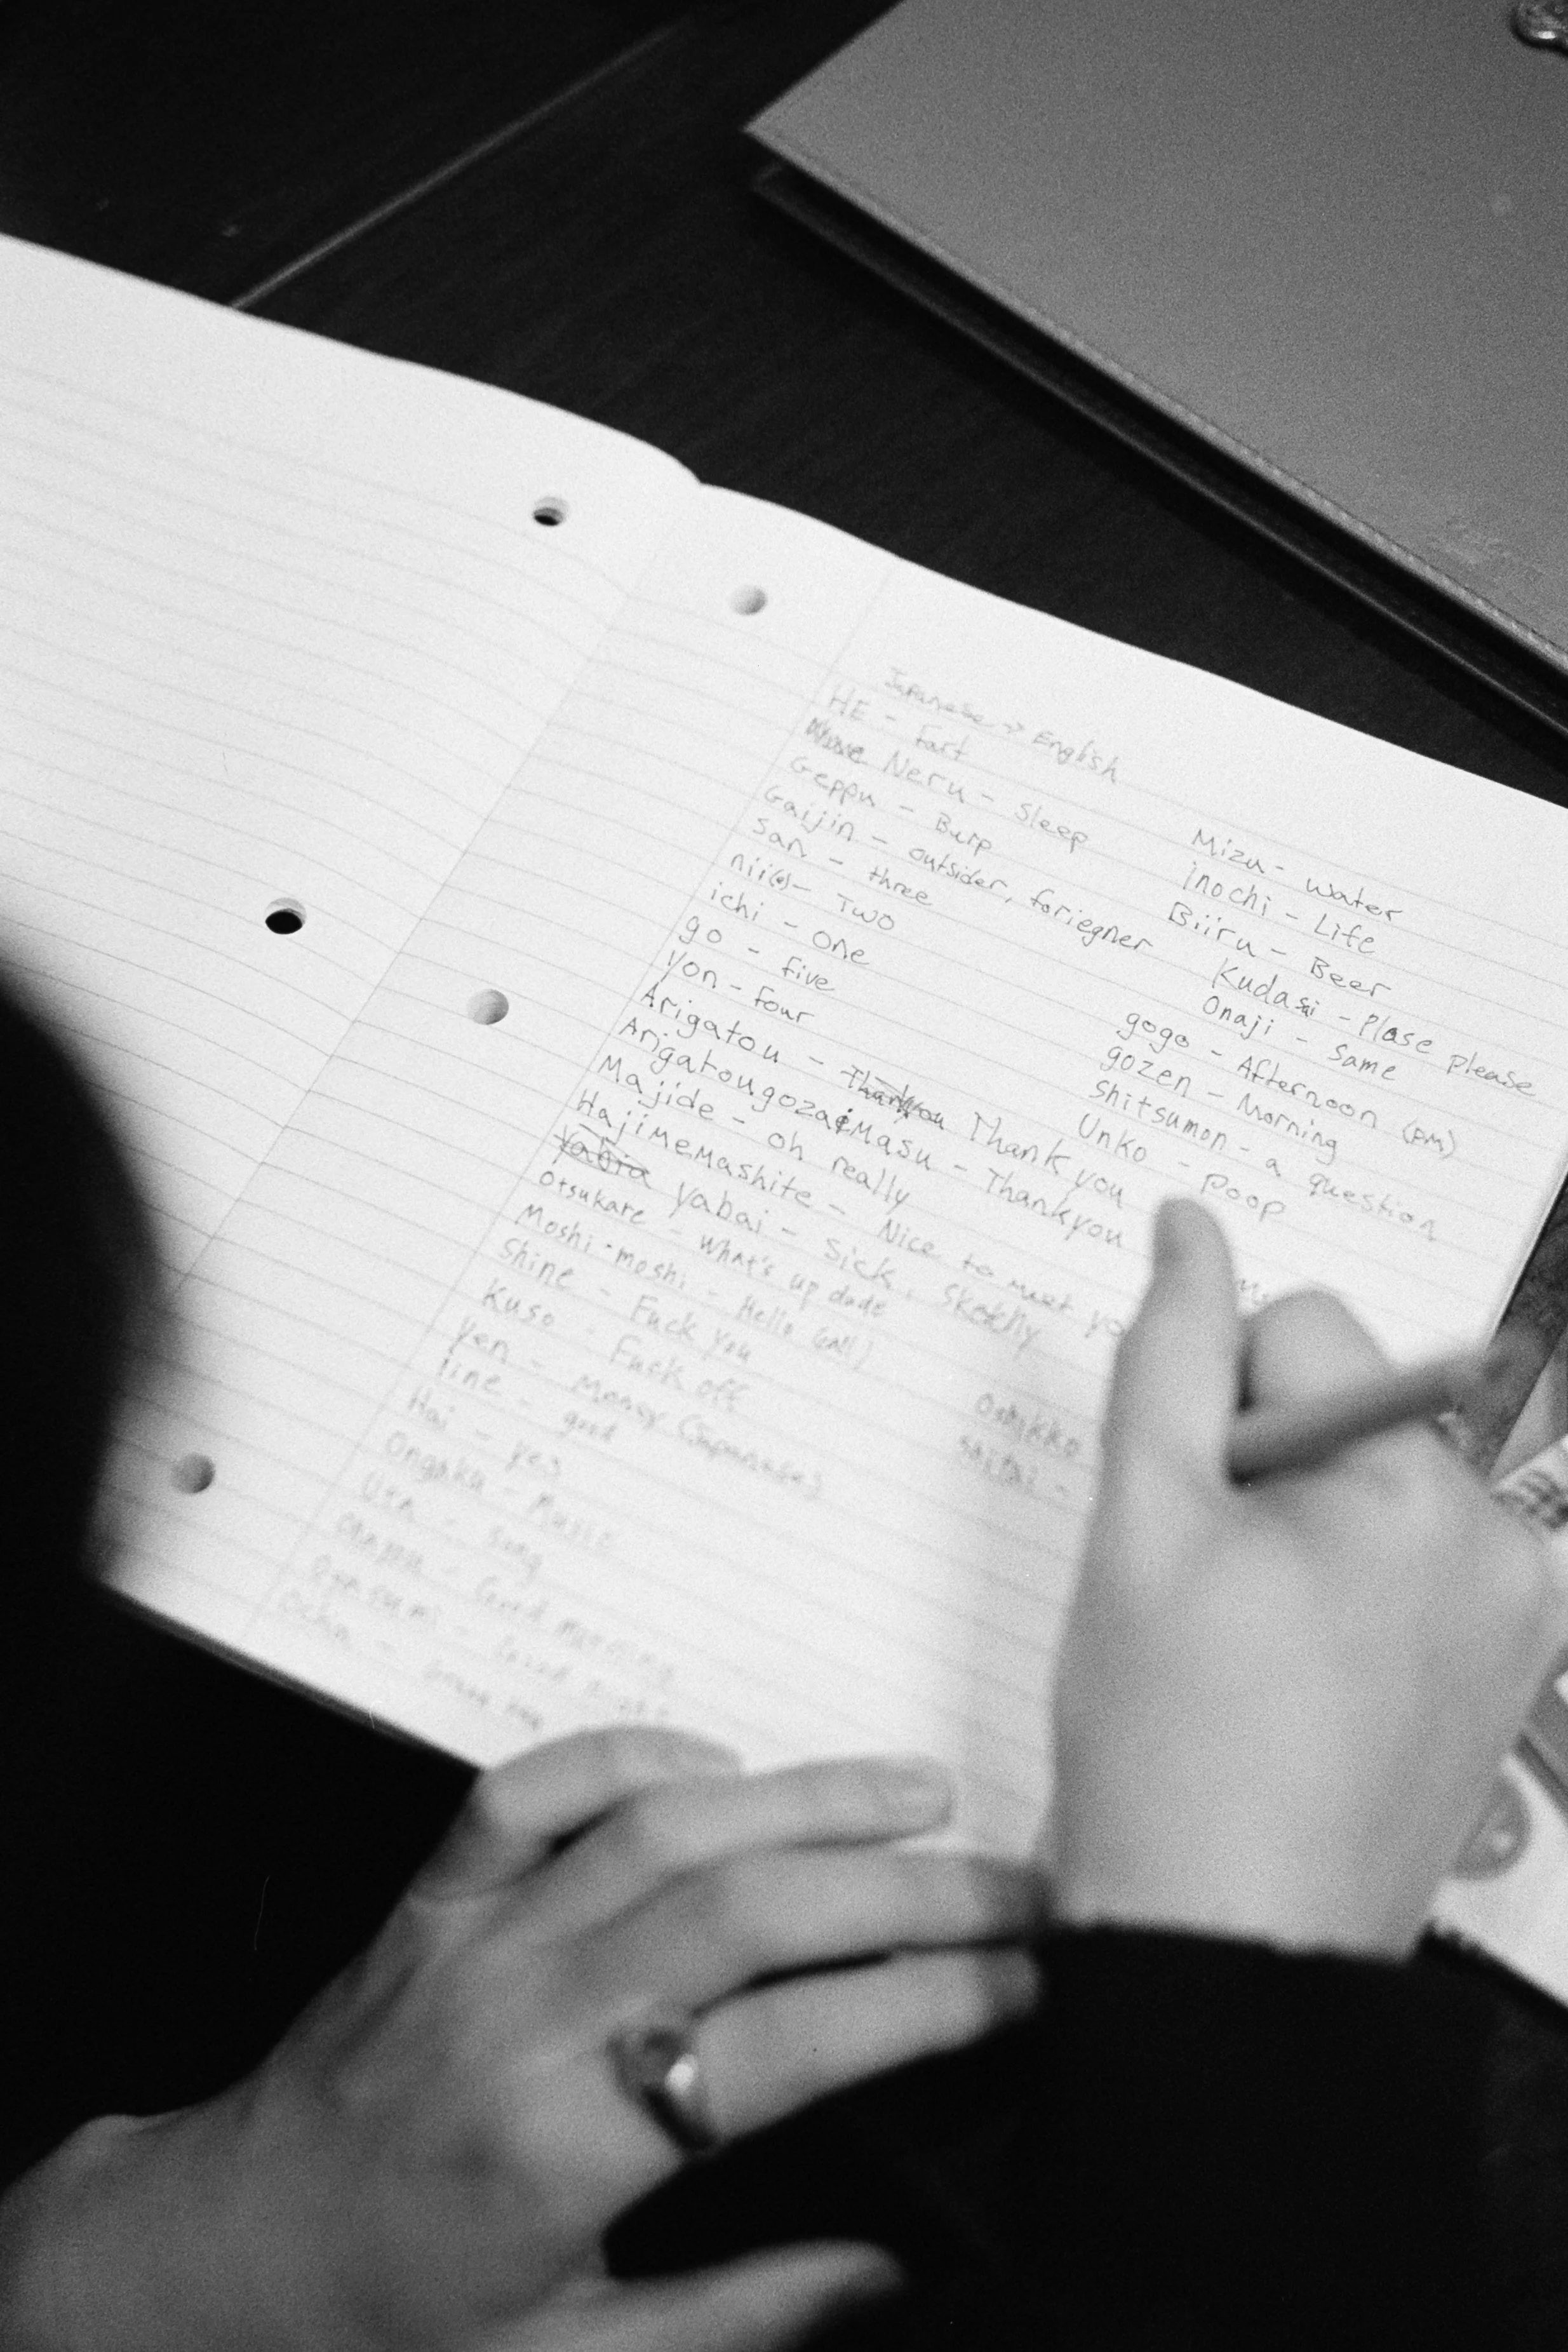 Japanese → English
HE - fart
Neru - Sleep
Geppu - Burp
Gaijin - outsider, foriegner
San - three
nii(e)- Two
ichi - One
go - five
Yon - four
Arigatou - Thankyou Thank you
Arigatougozaimasu - Thankyou
Majide - oh really
Hajimemashite - Nice to meet yo
Yabia Yabai - Sick, Sketchy
Otsukare - What's up dude
Moshi-moshi - Hello (call)
Shine - Fuck you
Kuso - Fuck off
Yen - Money (Japanese)
iine - good
Hai - yes
Ongaku - Music
Uta - song
- Good morning
Oyasumi - Good night
Ocha -
Mizu - water
inochi - Life
Biiru - Beer
Kudasai - Plase Please
Onaji - Same
gogo - Afternoon (PM)
gozen - Morning
Shitsumon - a question
Unko - Poop
Oshikko
Shitai -